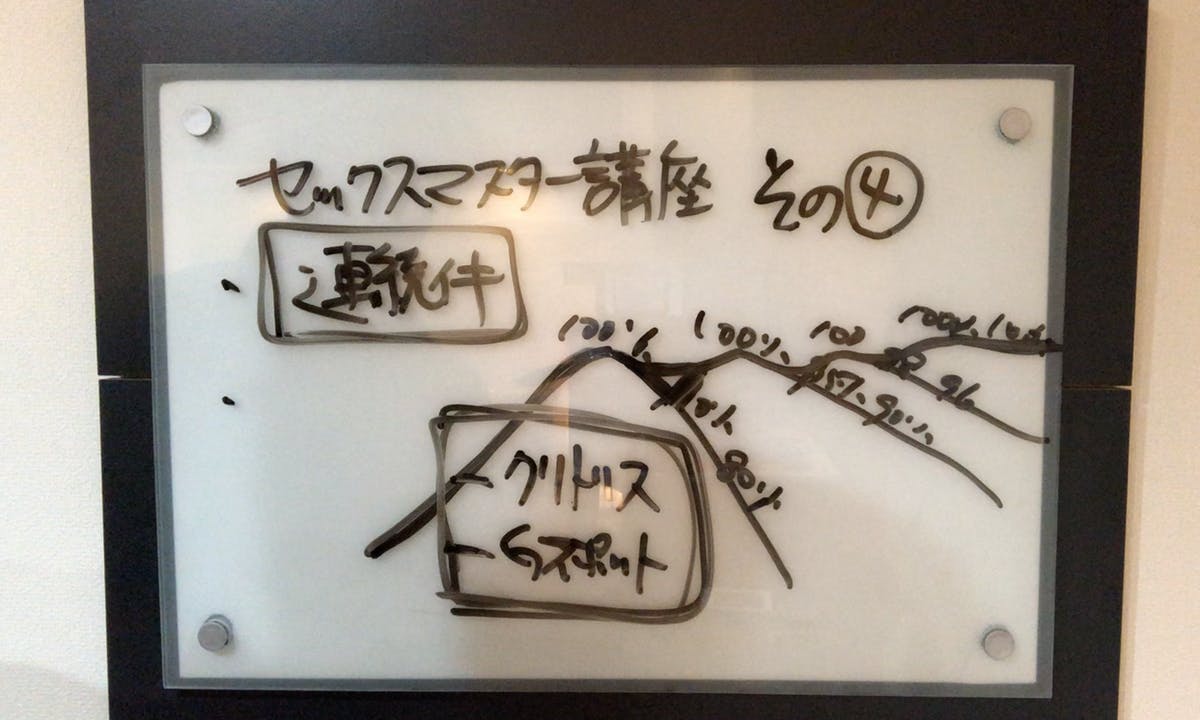 セックスマスター講座 その④
・
連続イキ
100% 100% 100 100% 100%
90% 96
80%
・
クリトリス
Gスポット